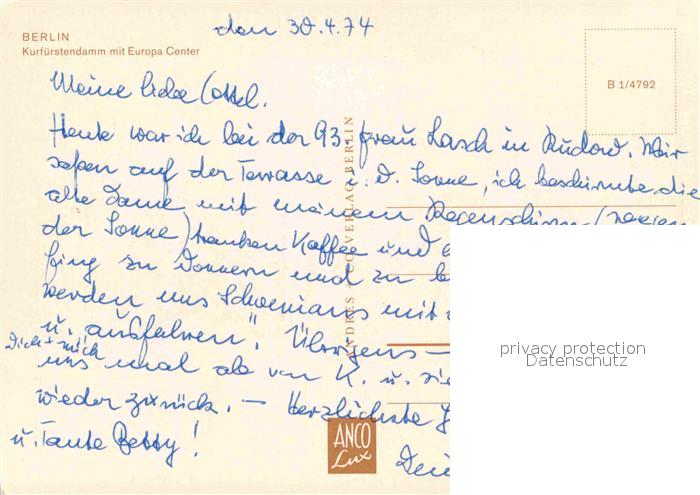 den 30.4.74
BERLIN
Kurfürstendamm mit Europa Center
B 1/4792
Meine liebe
Heute war ich bei der 93. Frau Lasch in Rudow. Wir
saßen auf der Terrasse i. d. Sonne, ich beschirmte die
alte Dame mit meinem Regenschirm (wegen
der Sonne) tranken Kaffee und
fing zu donnern und zu
werden uns mit
u. ausfahren". Übrigens –
Dich + mich
uns mal ab von K. u. sie
wieder zurück. – Herzlichste
u. Tante Betty!
ANCO
Lux
privacy protection
Datenschutz